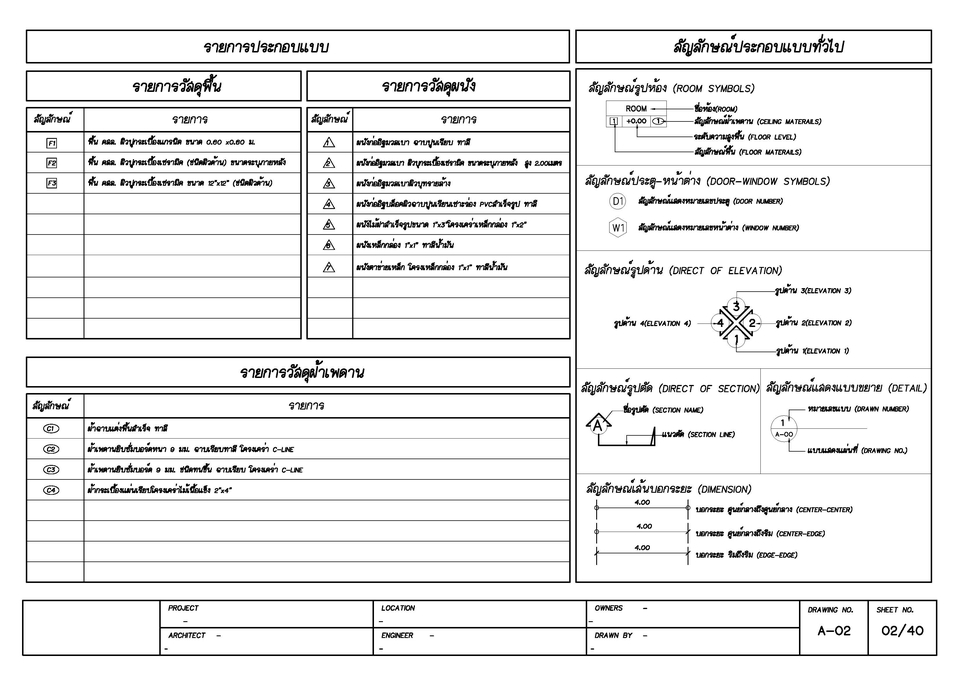 รายการประกอบแบบ
รายการวัสดุพื้น
สัญลักษณ์ รายการ
F1 พื้น คสล. ผิวปูกระเบื้องแกรนิต ขนาด 0.60 x0.60 ม.
F2 พื้น คสล. ผิวปูกระเบื้องเซรามิค (ชนิดผิวด้าน) ขนาดระบุภายหลัง
F3 พื้น คสล. ผิวปูกระเบื้องเซรามิค ขนาด 12"x12" (ชนิดผิวด้าน)
รายการวัสดุผนัง
สัญลักษณ์ รายการ
1 ผนังก่ออิฐมวลเบา ฉาบปูนเรียบ ทาสี
2 ผนังก่ออิฐมวลเบา ผิวปูกระเบื้องเซรามิค ขนาดระบุภายหลัง สูง 2.00เมตร
3 ผนังก่ออิฐมวลเบาผิวบุทรายล้าง
4 ผนังก่ออิฐบล็อคผิวฉาบปูนเรียบเซาะร่อง PVCสำเร็จรูป ทาสี
5 ผนังไม้ฝาสำเร็จรูปขนาด 1"x3"โครงเคร่าเหล็กกล่อง 1"x2"
6 ผนังเหล็กกล่อง 1"x1" ทาสีน้ำมัน
7 ผนังตาข่ายเหล็ก โครงเหล็กกล่อง 1"x1" ทาสีน้ำมัน
รายการวัสดุฝ้าเพดาน
สัญลักษณ์ รายการ
C1 ฝ้าฉาบแต่งพื้นสำเร็จ ทาสี
C2 ฝ้าเพดานยิบซั่มบอร์ดหนา 9 มม. ฉาบเรียบทาสี โครงเคร่า C-LINE
C3 ฝ้าเพดานยิบซั่มบอร์ด 9 มม. ชนิดทนชื้น ฉาบเรียบ โครงเคร่า C-LINE
C4 ฝ้ากระเบื้องแผ่นเรียบโครงเคร่าไม้เนื้อแข็ง 2"x4"
สัญลักษณ์ประกอบแบบทั่วไป
สัญลักษณ์รูปห้อง (ROOM SYMBOLS)
ROOM ชื่อห้อง(ROOM)
1 +0.00 1 สัญลักษณ์ฝ้าเพดาน (CEILING MATERAILS)
ระดับความสูงพื้น (FLOOR LEVEL)
สัญลักษณ์พื้น (FLOOR MATERAILS)
สัญลักษณ์ประตู-หน้าต่าง (DOOR-WINDOW SYMBOLS)
D1 สัญลักษณ์แสดงหมายเลขประตู (DOOR NUMBER)
W1 สัญลักษณ์แสดงหมายเลขหน้าต่าง (WINDOW NUMBER)
สัญลักษณ์รูปด้าน (DIRECT OF ELEVATION)
รูปด้าน 3(ELEVATION 3)
3
รูปด้าน 4(ELEVATION 4) 4 2 รูปด้าน 2(ELEVATION 2)
1
รูปด้าน 1(ELEVATION 1)
สัญลักษณ์รูปตัด (DIRECT OF SECTION)
ชื่อรูปตัด (SECTION NAME)
A
แนวตัด (SECTION LINE)
สัญลักษณ์แสดงแบบขยาย (DETAIL)
หมายเลขแบบ (DRAWN NUMBER)
1
A-00
แบบแสดงแผ่นที่ (DRAWING NO.)
สัญลักษณ์เส้นบอกระยะ (DIMENSION)
4.00 บอกระยะ ศูนย์กลางถึงศูนย์กลาง (CENTER-CENTER)
4.00 บอกระยะ ศูนย์กลางถึงริม (CENTER-EDGE)
4.00 บอกระยะ ริมถึงริม (EDGE-EDGE)
PROJECT
-
LOCATION
-
OWNERS -
-
ARCHITECT -
-
ENGINEER -
-
DRAWN BY -
-
DRAWING NO.
A-02
SHEET NO.
02/40